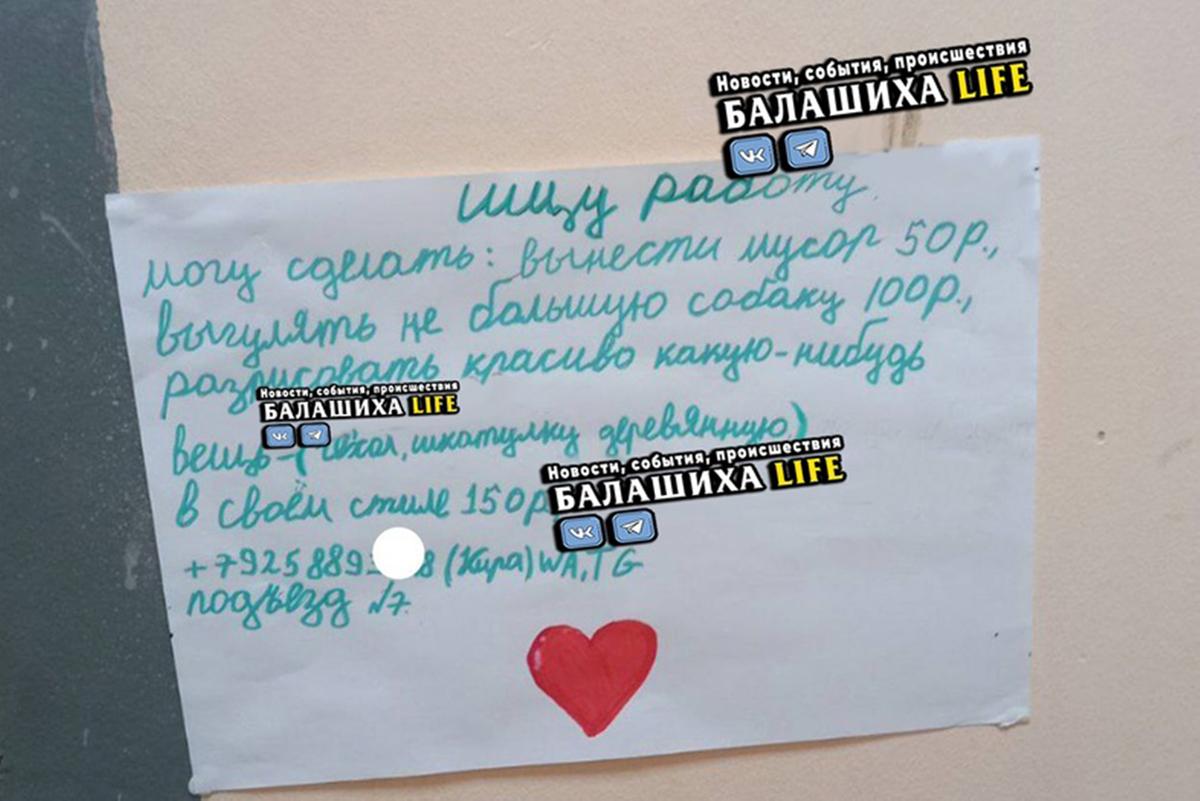 Новости, события, происшествия
БАЛАШИХА LIFE
Ищу работу.
могу сделать: вынести мусор 50р.,
выгулять не большую собаку 100р.,
разрисовать красиво какую-нибудь
Новости, события, происшествия
БАЛАШИХА LIFE
вещь-(чехол, шкатулку деревянную)
Новости, события, происшествия
БАЛАШИХА LIFE
в своём стиле 150р
+7925889 8 (Кира) WA, TG
подъезд №7.